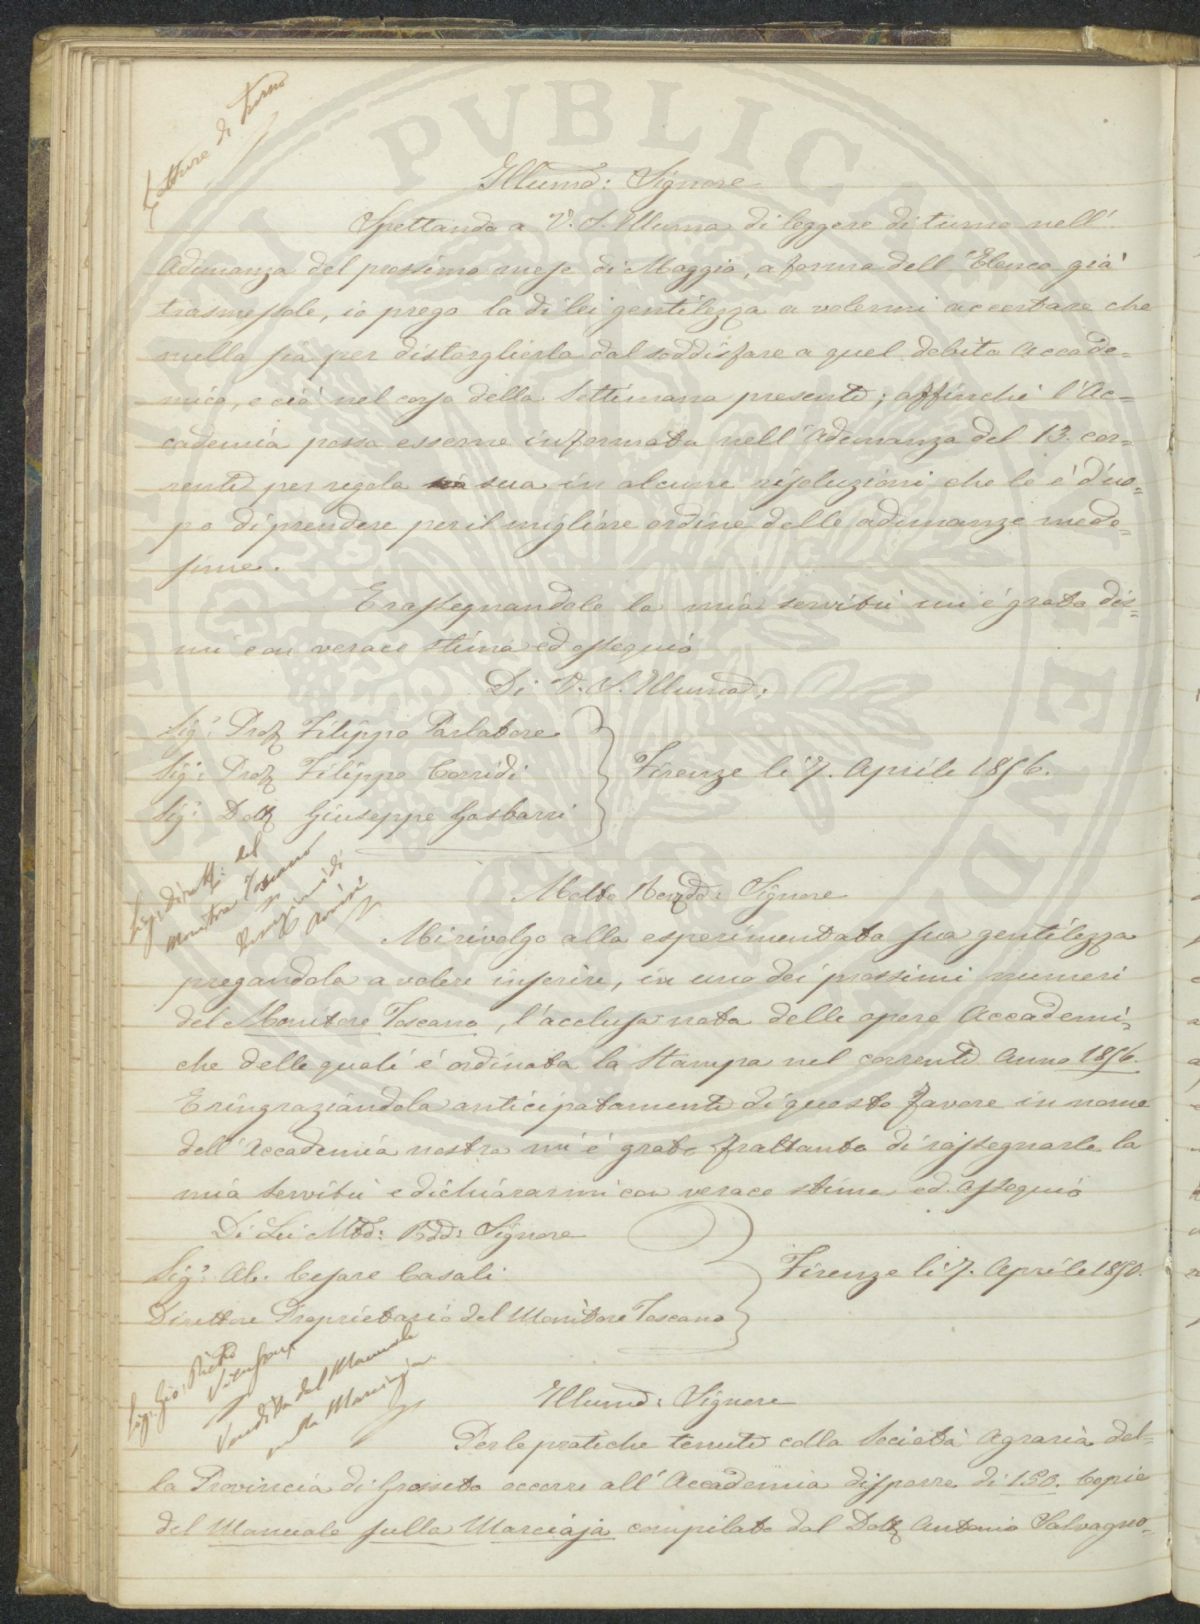 Letture di Turno
Illumo: Signore
Spettando a V. S. Illuma di leggere di turno nell'
Adunanza del prossimo mese di Maggio, a forma dell'Elenco già
trasmessole, io prego la di lei gentilezza a volermi accertare che
nulla sia per distorglierla dal soddisfare a quel debito Accade=
mico, e ciò nel corso della Settimana presente; affinchè l'Ac=
cademia possa esserne informata nell'Adunanza del 13. cor=
rente per regola sua in alcune risoluzioni che le è d'uo=
po di prendere per il migliore ordine delle adunanze mede=
sime.
E rassegnandole la mia servitù mi è grato dir=
mi con verace stima ed ossequio
Di V. S. Illumo:
Sigr: Prof Filippo Parlatore
Sigr: Prof Filippo Corridi
Sigr: Dott Giuseppe Gasbarri
Firenze li 7. Aprile 1856.
Sigr: Dirett: del
Monitore Toscano
Inserzione di
Avvisi
Molto Revdo: Signore
Mi rivolgo alla esperimentata sua gentilezza
pregandola a volere inserire, in uno dei prossimi numeri
del Monitore Toscano, l'acclusa nota delle opere Accademi=
che delle quali è ordinata la Stampa nel corrente Anno 1856.
E ringraziandola anticipatamente di questo favore in nome
dell'Accademia nostra mi è grato frattanto di rassegnarle la
mia servitù e dichiararmi con verace stima ed ossequio
Di Lei Mto: Rdo: Signore
Sigr: Ab. Cesare Casali
Direttore Proprietario del Monitore Toscano
Firenze li 7. Aprile 1856.
Sigr: Gio: Pietro
Vieusseux
Vendita del Manuale
sulla Marciaja
Illumo: Signore
Per le pratiche tenute colla Società Agraria del=
la Provincia di Grosseto occorre all'Accademia disporre di 150. Copie
del Manuale sulla Marciaja compilato dal Dott Antonio Salvagno=